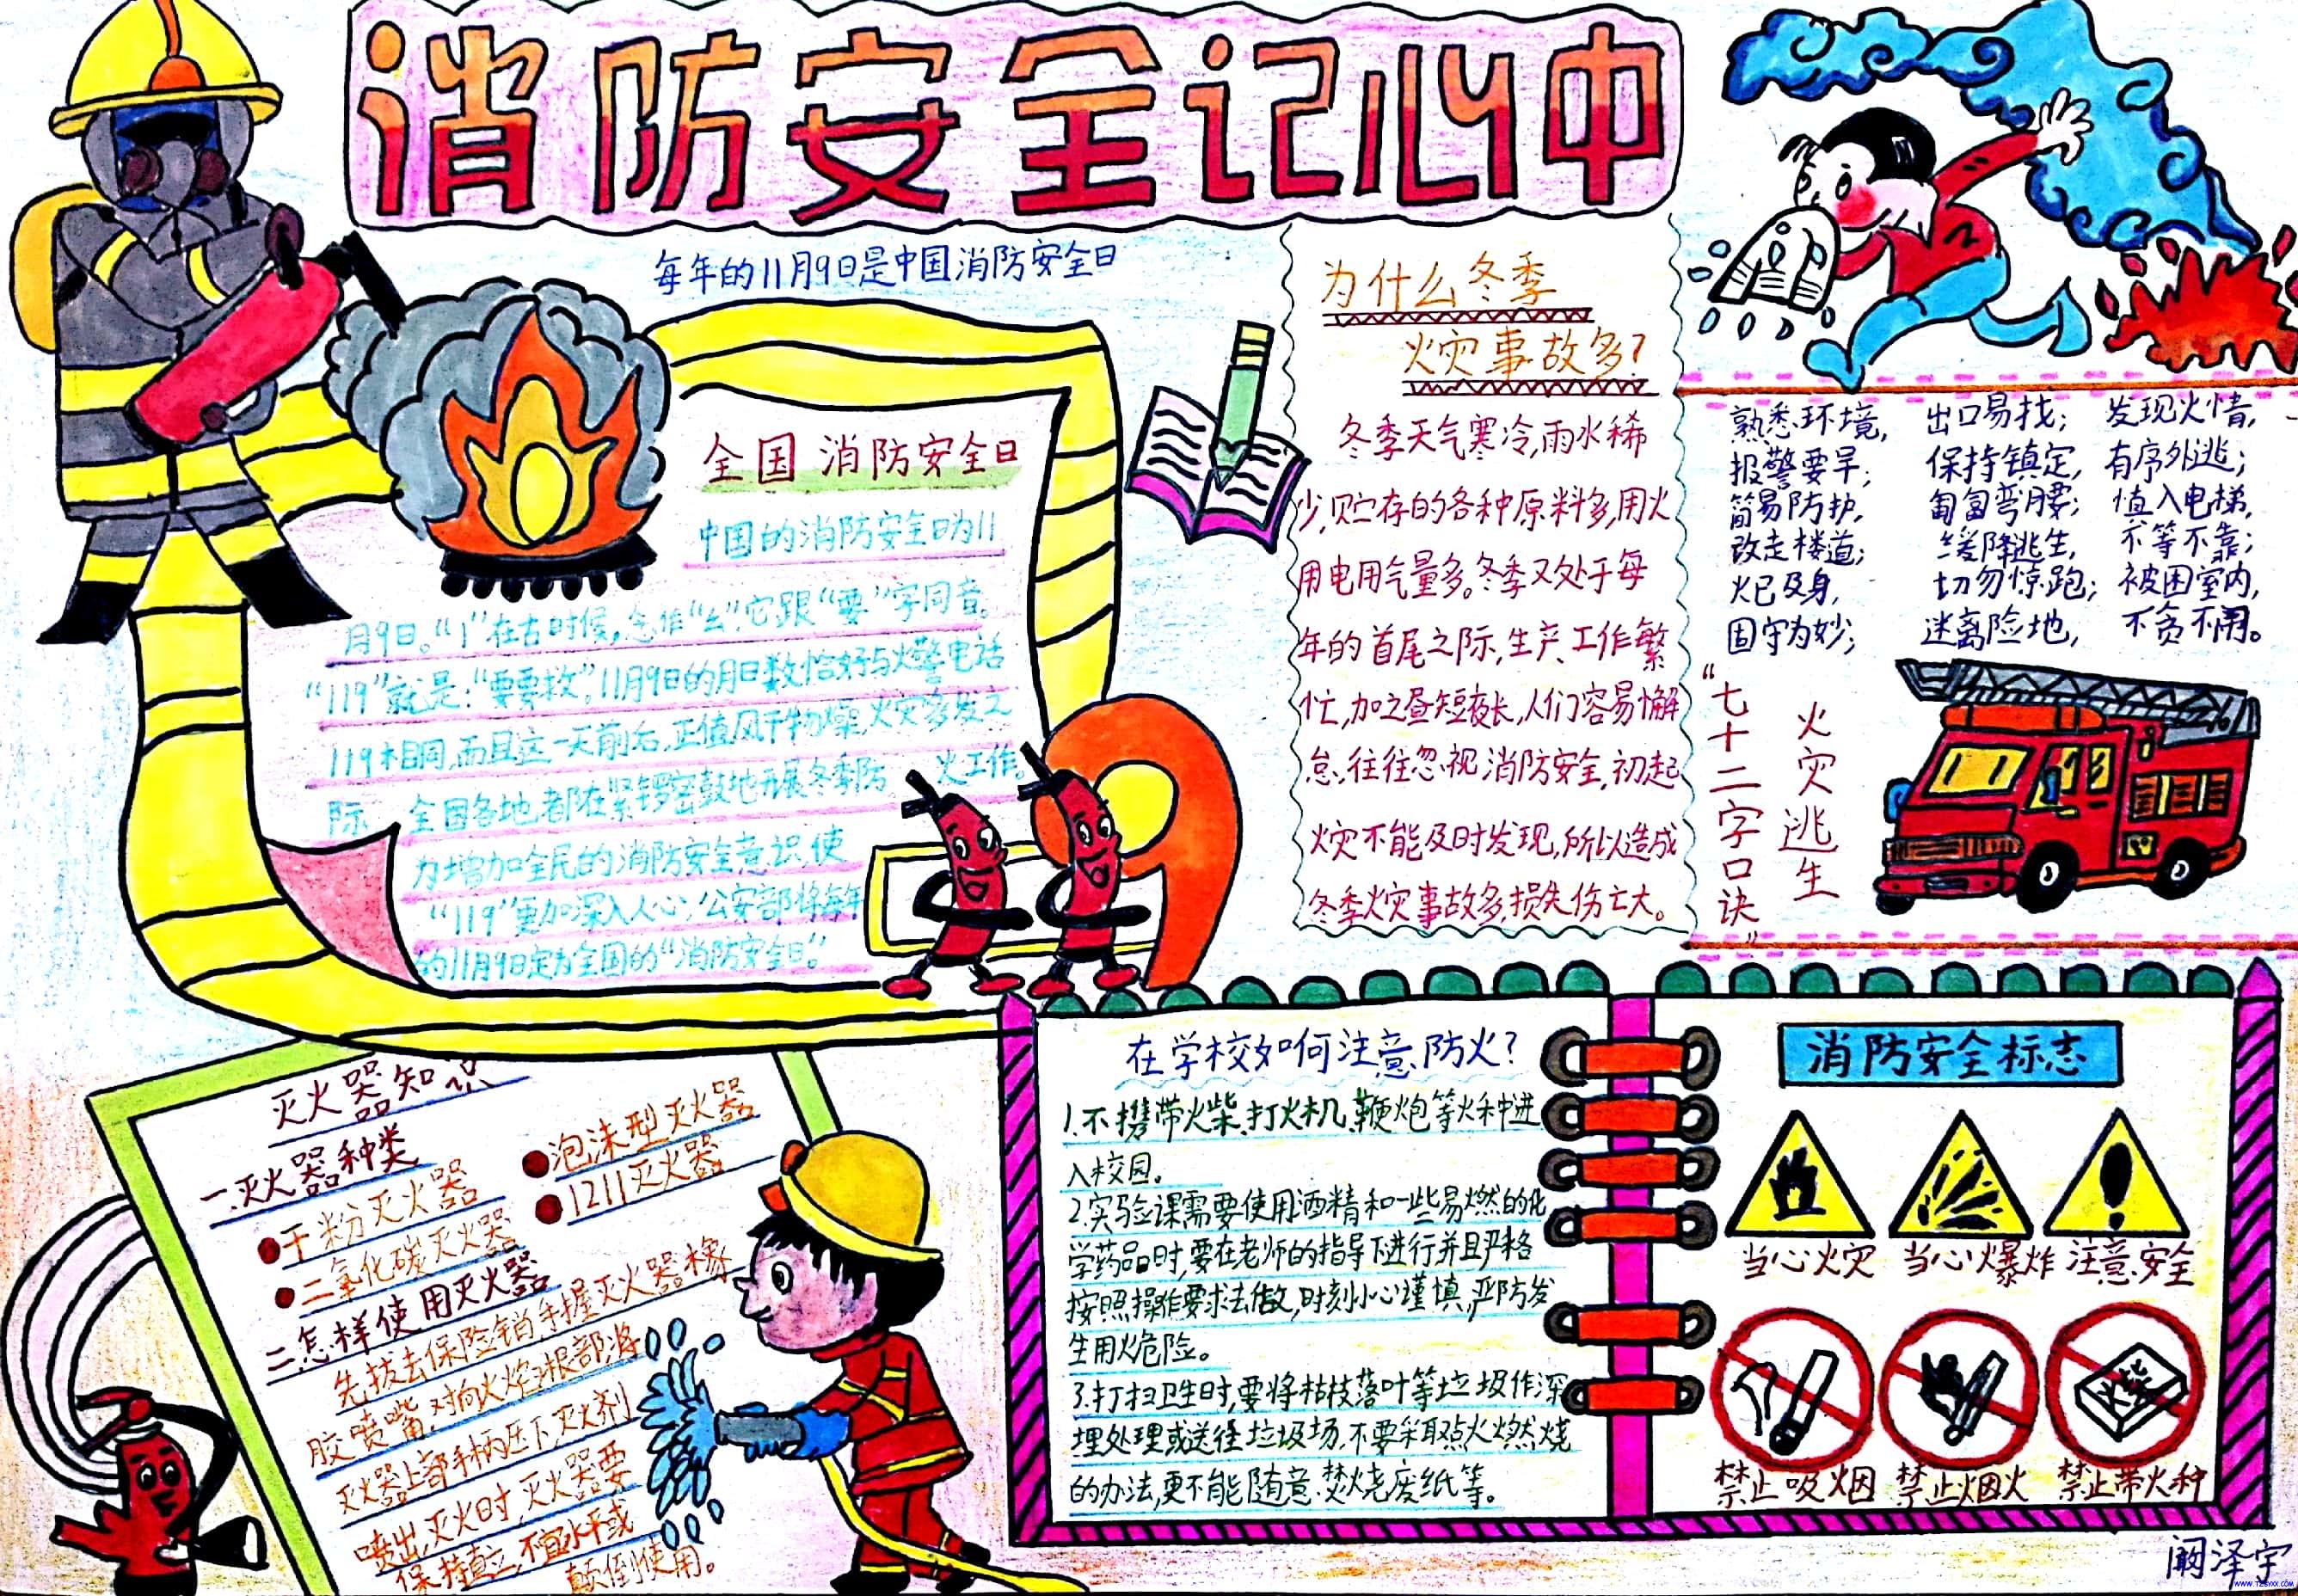 消防安全记心中
每年的11月9日是中国消防安全日
全国消防安全日
中国的消防安全日为11
月9日。“1”在古时候,念作“幺”,它跟“要”字同音。
“119”就是:“要要救”。11月9日的月日数恰好与火警电话
119相同,而且这一天前后,正值风干物燥,火灾多发之
际 全国各地,都在紧锣密鼓地开展冬季防火工作。
为增加全民的消防安全意识,使
“119”更加深入人心,公安部将每年
的11月9日定为全国的“消防安全日。”
为什么冬季
火灾事故多?
冬季天气寒冷,雨水稀
少,贮存的各种原料多,用火
用电用气量多。冬季又处于每
年的首尾之际,生产、工作繁
忙,加之昼短夜长,人们容易懈
怠,往往忽视消防安全,初起
火灾不能及时发现,所以造成
冬季火灾事故多,损失伤亡大。
熟悉环境, 出口易找; 发现火情,
报警要早; 保持镇定, 有序外逃;
简易防护, 匍匐弯腰; 慎入电梯,
改走楼道; 缓降逃生, 不等不靠;
火已及身, 切勿惊跑; 被困室内,
固守为妙; 迷离险地, 不贪不闹。
火灾逃生
“七十二字口诀”
灭火器知识
一.灭火器种类
干粉灭火器
二氧化碳灭火器
泡沫型灭火器
1211灭火器
二.怎样使用灭火器
先拔去保险销手握灭火器橡
胶喷嘴,对向火焰根部将
灭火器上部手柄压下,灭火剂
喷出,灭火时,灭火器要
保持直立,不宜水平或
颠倒使用。
在学校如何注意防火?
1.不携带火柴、打火机、鞭炮等火种进
入校园。
2.实验课需要使用酒精和一些易燃的化
学药品时,要在老师的指导下进行并且严格
按照操作要求去做,时刻小心谨慎,严防发
生用火危险。
3.打扫卫生时,要将枯枝落叶等垃圾作深
埋处理或送往垃圾场,不要采取点火燃烧
的办法,更不能随意焚烧废纸等。
消防安全标志
当心火灾 当心爆炸 注意安全
禁止吸烟 禁止烟火 禁止带火种
阚泽宇